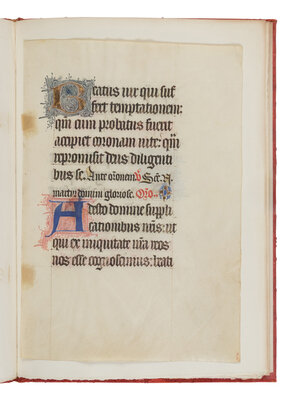 Beatus uir qui suf
fert temptationem:
qm cum probatus fuerit
accipiet coronam uite: qm
repromisit deus diligenti
bus se. Ante oronem V Sce. A.
martir domini gloriose. Oro.
Adesto domine suppli
cationibus nris: ut
qui ex iniquitate nra reos
nos esse cognoscimus: beati